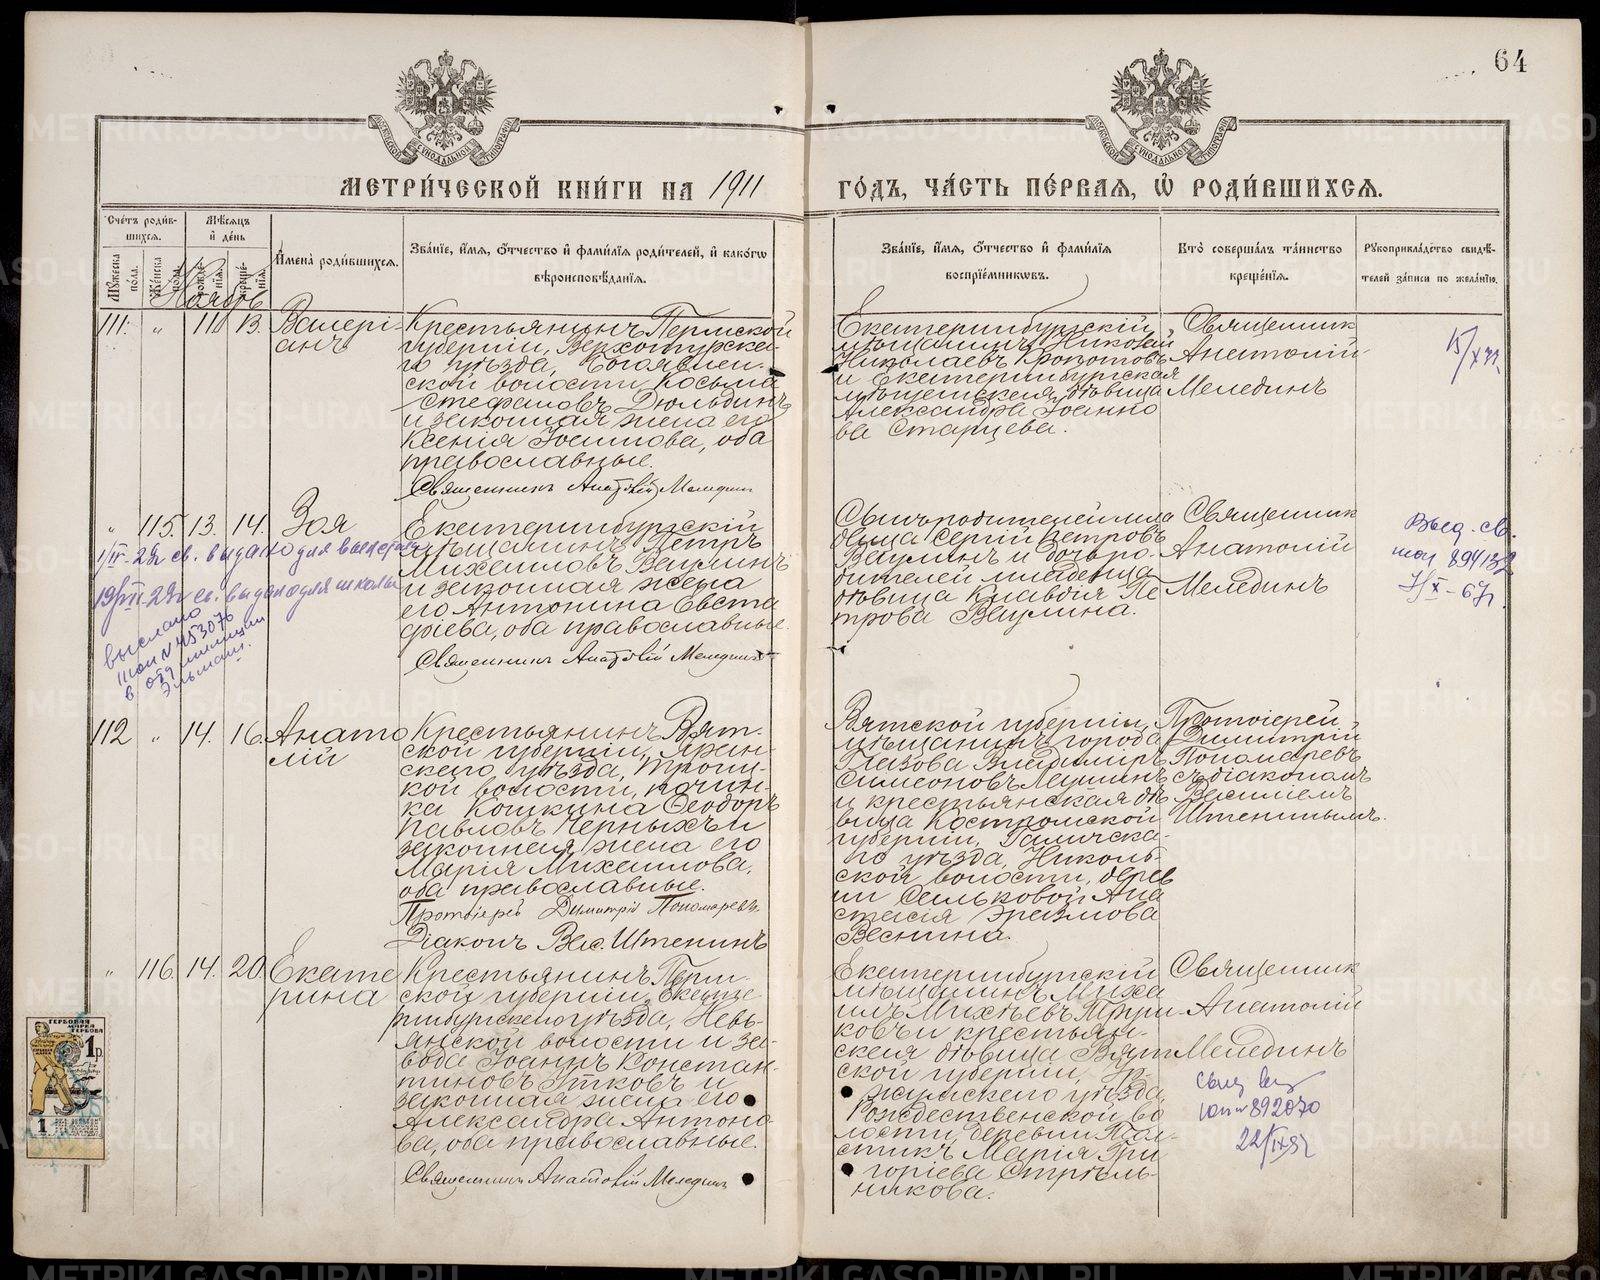 64
МЕТРИ́ЧЕСКОЙ КНИ́ГИ НА 1911 ГО́ДЪ, ЧА́СТЬ ПЕ́РВАЯ, Ѡ҆ РОДИ́ВШИХСЯ.
Счетъ роди́вшихся.
Мѣ́сяцъ и҆ де́нь
И҆мена̀ роди́вшихся.
Зва́нїе, и҆́мя, ѻ҆́тчество и҆ фами́лїя роди́телей, и҆ како́гѡ
вѣроисповѣ́данїя.
Зва́нїе, и҆́мя, ѻ҆́тчество и҆ фами́лїя
воспрїе́мниковъ.
Кто̀ соверша́лъ та́инство
креще́нїя.
Рꙋкоприкла́дство свидѣ́-
телей за́писи по жела́нїю.
Мꙋжеска по́ла.
Же́нска по́ла.
рожде́нїя.
креще́нїя.
Ноябрь
111. " 11 13. Валері-
анъ
Крестьянинъ Пермской
губерніи, Верхотурска-
го уѣзда, Богоявлен-
ской волости Косьма
Стефановъ Дюльдинъ
и законная жена его
Ксенія Іосифова, оба
православные.
Священникъ Анатолій Мелединъ
Екатеринбургскій
мѣщанинъ Николай
Николаевъ Кропотовъ
и Екатеринбургская
мѣщанская дѣвица
Александра Іоанно
ва Старцева.
Священник
Анатолій
Мелединъ
" 115. 13. 14. Зоя
Екатеринбургскій
мѣщанинъ Петръ
Михаиловъ Ваулинъ
и законная жена
его Антонина Евста
фіева, оба православные.
Священникъ Анатолій Мелединъ
Сынъ родителей мла
денца Сергій Петровъ
Ваулинъ и дочь ро-
дителей младенца
дѣвица Клавдія Пе
трова Ваулина.
Священник
Анатолій
Мелединъ
Выд. св.
894132
7/X-67г.
св. выдано для
св. выдано для школы
выслано
№ 453076
в отд милиции
112 " 14. 16. Анато
лій
Крестьянинъ Вят-
ской губерніи, Яран-
скаго уѣзда, Троиц-
кой волости, почин-
ка Кошкина Ѳеодоръ
Павловъ Черныхъ и
законная жена его
Марія Михаилова,
оба православные.
Протоіерей Димитрій Пономаревъ.
Діаконъ Вас. Штенинъ
Вятской губерніи,
мѣщанинъ города
Глазова Владимиръ
Симеоновъ
и крестьянская дѣ
вица Костромской
губерніи, Галичска-
го уѣзда, Николь-
ской волости, дерев
ни Сельковой Ана
стасія
Веснина.
Протоіерей
Димитрій
Пономаревъ
съ діакономъ
Василіемъ
Штенинымъ.
" 116. 14. 20. Екате
рина
Крестьянинъ Перм-
ской губерніи, Екате
ринбургскаго уѣзда, Невь-
янской волости и за-
вода Іоаннъ Констан-
тиновъ Утковъ и
законная жена его
Александра Антоно
ва, оба православные.
Священникъ Анатолій Мелединъ
Екатеринбургскій
мѣщанинъ Миха
илъ
ковъ и крестьян-
ская дѣвица Вят
ской губерніи, Ур-
жумскаго уѣзда,
Рождественской во
лости, деревни
Марія Гри
горіева Стрѣль-
никова.
Священник
Анатолій
Мелединъ
892070
ГЕРБОВАЯ
МАРКА
1 р.
1
METRIKI.GASO-URAL.RU